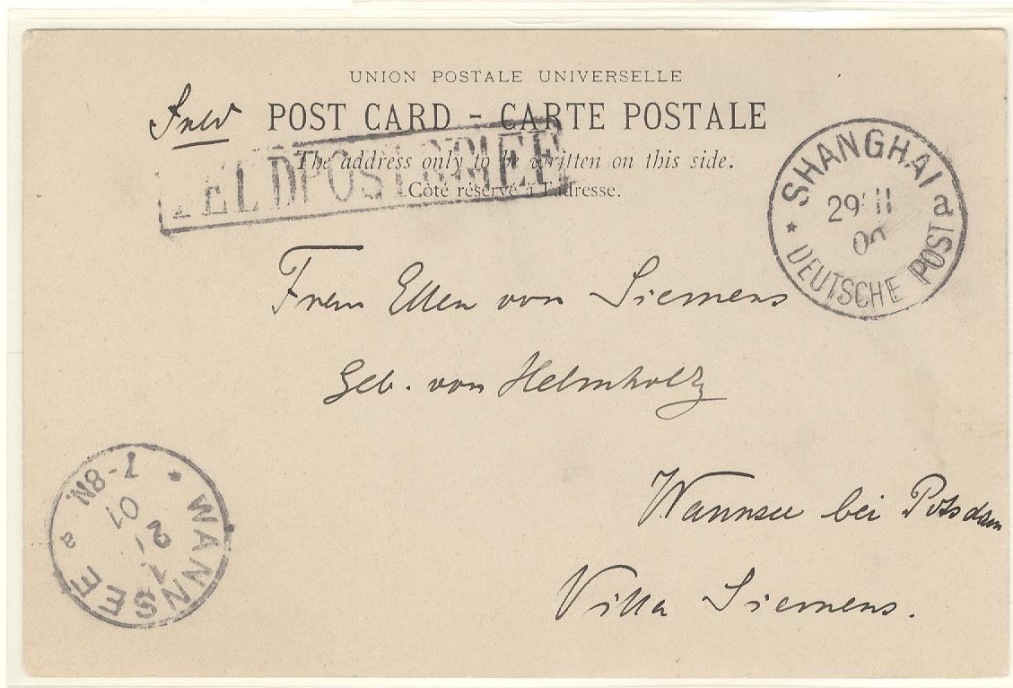 UNION POSTALE UNIVERSELLE
POST CARD - CARTE POSTALE
The address only to be written on this side.
Côté réservé à l'adresse.
FELDPOSTBRIEF
SHANGHAI a
29 11
00
* DEUTSCHE POST
Ellen von Siemens
Geb. von Helmholtz
Wannsee bei Potsdam
Villa Siemens.
* WANNSEE a
2 1
01
7-8N.